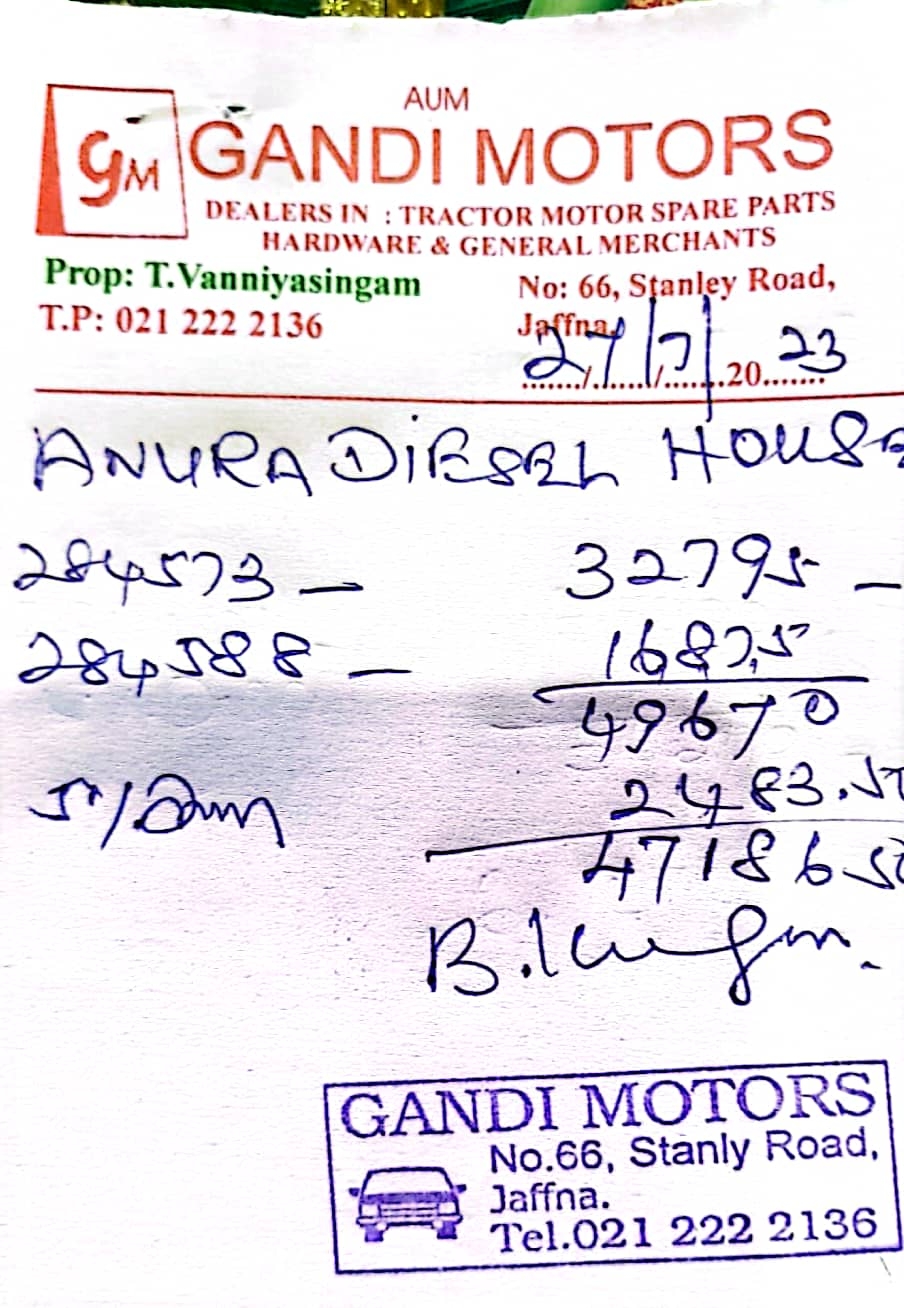 AUM
GM GANDI MOTORS
DEALERS IN : TRACTOR MOTOR SPARE PARTS
HARDWARE & GENERAL MERCHANTS
Prop: T.Vanniyasingam
No: 66, Stanley Road,
T.P: 021 222 2136
Jaffna.
27/7/2023
ANURA DIESEL HOUSE
284573 — 32795 —
284588 — 16875
49670
2483.5
47186 50
GANDI MOTORS
No.66, Stanly Road,
Jaffna.
Tel.021 222 2136